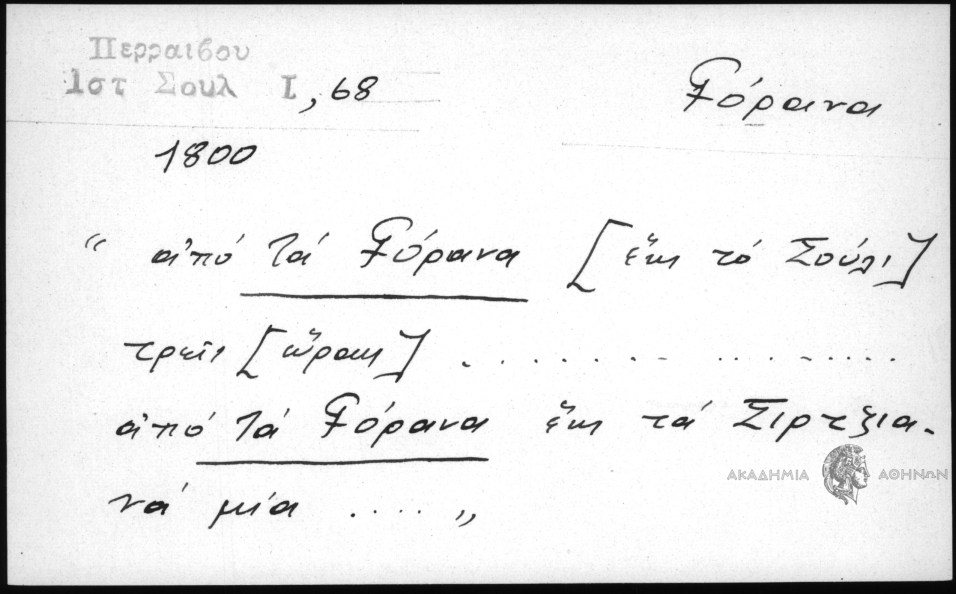 Περραιβου
Ιστ Σουλ Ι, 68
Τόρανα
1800
“ ἀπό τά Τόρανα [ἕως τό Σούλι]
τρεῖς [ὥρας] . . . . . . . . . . . . . .
ἀπό τά Τόρανα ἕως τά Σιρτζια-
νά μία . . . . „
ΑΚΑΔΗΜΙΑ ΑΘΗΝΩΝ